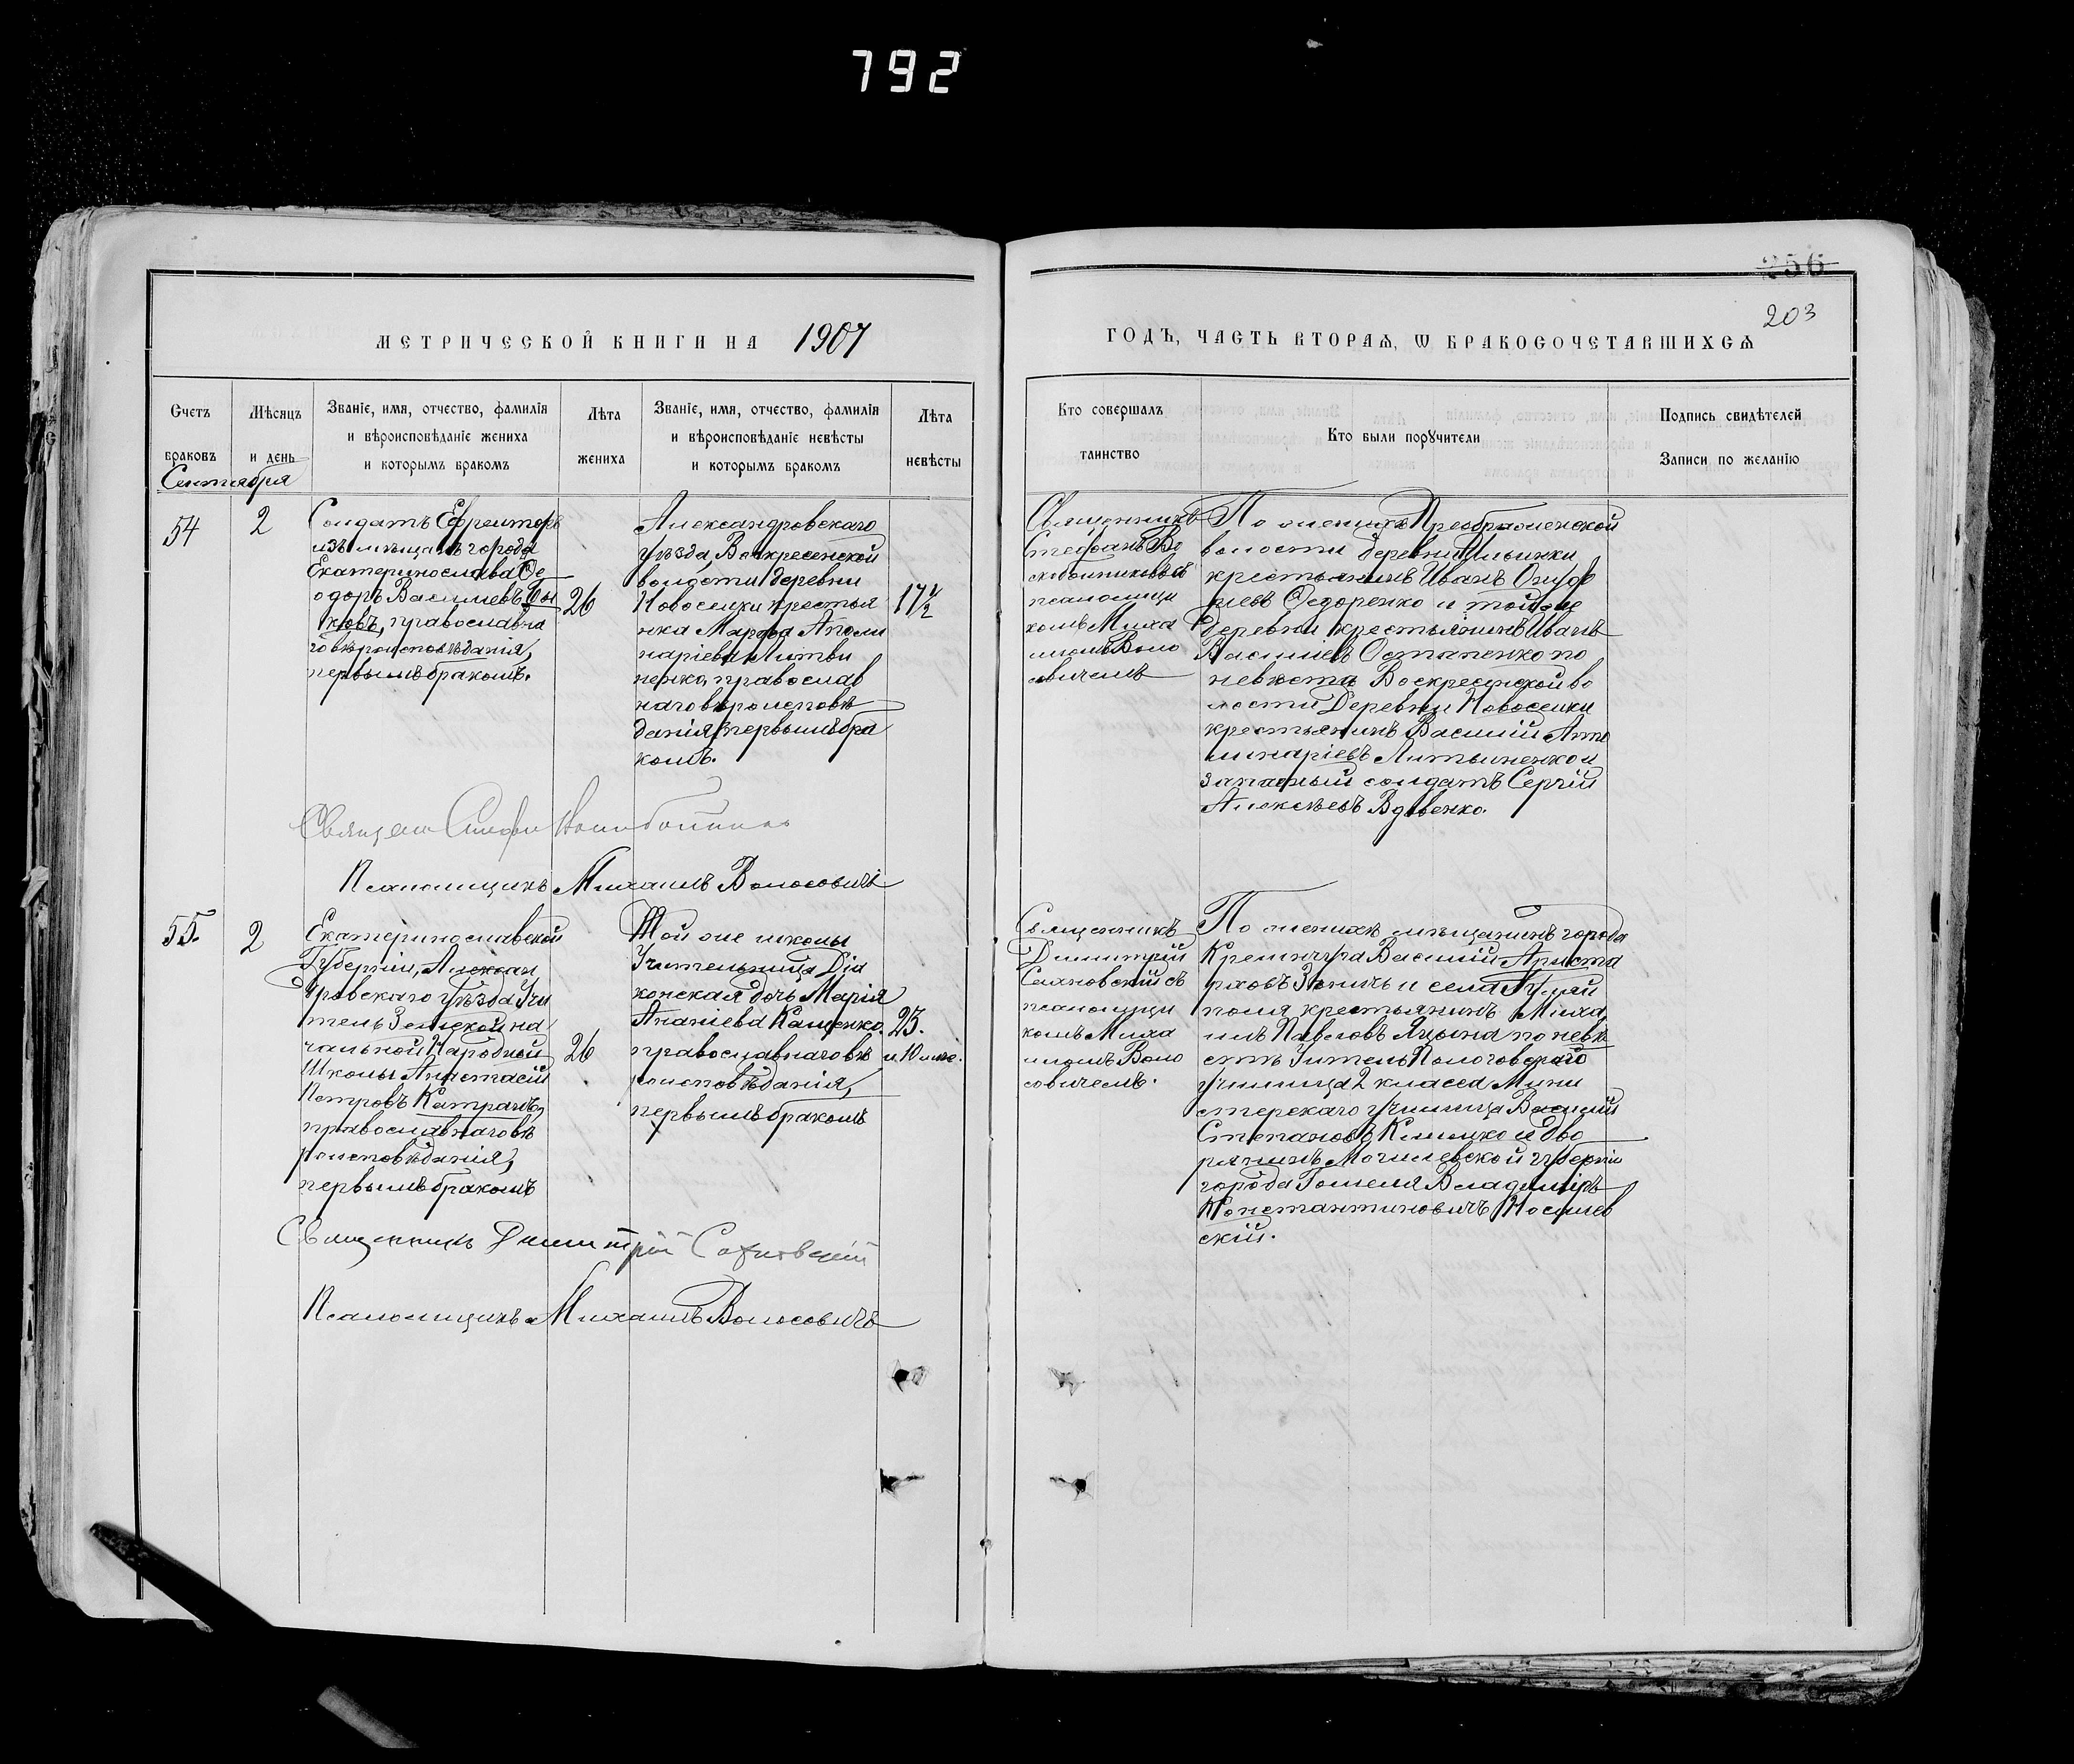 792
256
203
МЕТРИЧЕСКОЙ КНИГИ НА 1907
ГОДЪ, ЧАСТЬ ВТОРАѦ, Ѡ БРАКОСОЧЕТАВШИХСѦ
Счетъ браковъ
Мѣсяцъ и день
Званіе, имя, отчество, фамилія
и вѣроисповѣданіе жениха
и которымъ бракомъ
Лѣта
жениха
Званіе, имя, отчество, фамилія
и вѣроисповѣданіе невѣсты
и которымъ бракомъ
Лѣта
невѣсты
Кто совершалъ
таинство
Кто были порꙋчители
Подпись свидѣтелей
Записи по желанію
Сентября
54
2
Солдатъ Ефрейторъ
изъ мѣщанъ города
Екатеринослава Ѳе
одоръ Васильевъ
ковъ, православна
го вѣроисповѣданія,
первымъ бракомъ.
26
Александровскаго
уѣзда, Воскресенской
волости деревни
Новоселки крестья
нка Марфа Аполи
наріева Литви
ненко, православ
наго вѣроисповѣ
данія, первымъ бра
комъ.
17 1/2
Священникъ
Стефанъ
съ
псаломщи
комъ Миха
иломъ Воло
совичемъ
По женихѣ Преображенской
волости деревни Ульяновки
крестьянинъ Иванъ
Ѳедоренко и той же
деревни крестьянинъ Иванъ
Васильевъ Остапенко по
невѣстѣ Воскресенской во
лости Деревни Новоселки
крестьянинъ Василій Апо
линаріевъ Литвиненко и
запасный солдатъ Сергій
Алексѣевъ Вдовенко.
Псаломщикъ Михаилъ Волосовичъ
55.
2
Екатеринославской
Губерніи, Алексан
дровскаго уѣзда Учи
тель Земской на
чальной Народной
Школы Анастасій
Петровъ Катранъ,
православнаго вѣ
роисповѣданія,
первымъ бракомъ
26
Той же школы
Учительница Діа
конская дочь Марія
Ананіева Кащенко,
православнаго вѣ
роисповѣданія,
первымъ бракомъ
23.
и 10 мѣс.
Священникъ
Димитрій
Сахновскій съ
псаломщи
комъ Миха
иломъ Воло
совичемъ.
По женихѣ мѣщанинъ города
Кременчуга Василій Ариста
рховъ и села Гуляй
поля крестьянинъ Миха
илъ Павловъ Яцына по невѣ
стѣ Учитель Пологовскаго
училища 2 класса Мини
стерскаго училища Василій
Степановъ и дво
рянинъ Могилевской губерніи
города Гомеля Владиміръ
Константиновичъ
скій.
Священникъ Димитрій Сахновскій
Псаломщикъ Михаилъ Волосовичъ